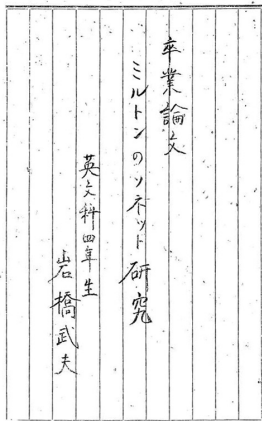 卒業論文
ミルトンのソネット研究
英文科四年生
岩橋武夫